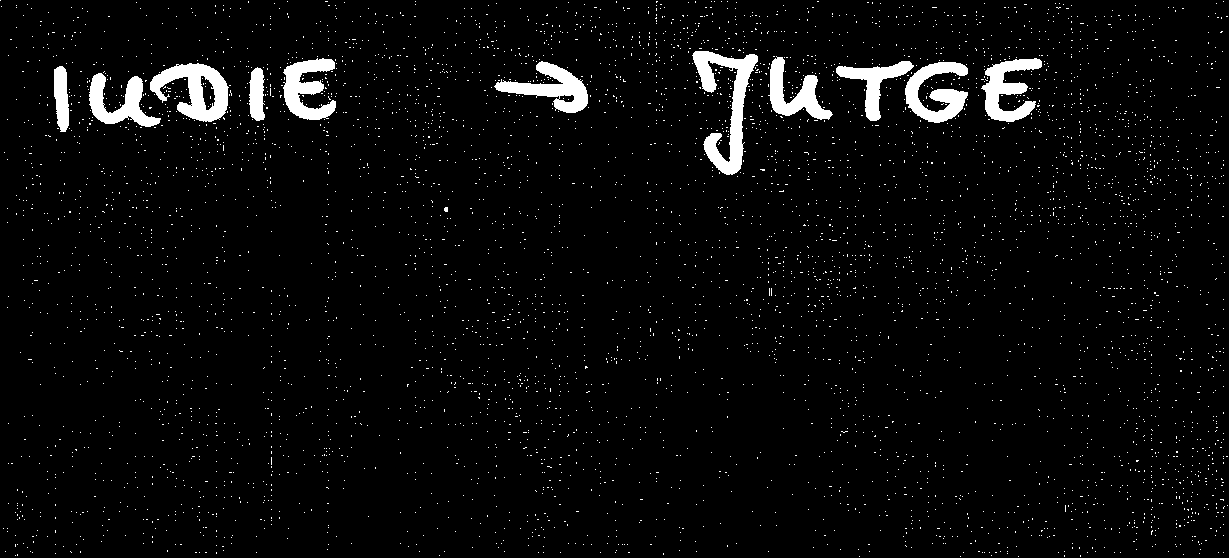 IUDIE → JUTGE